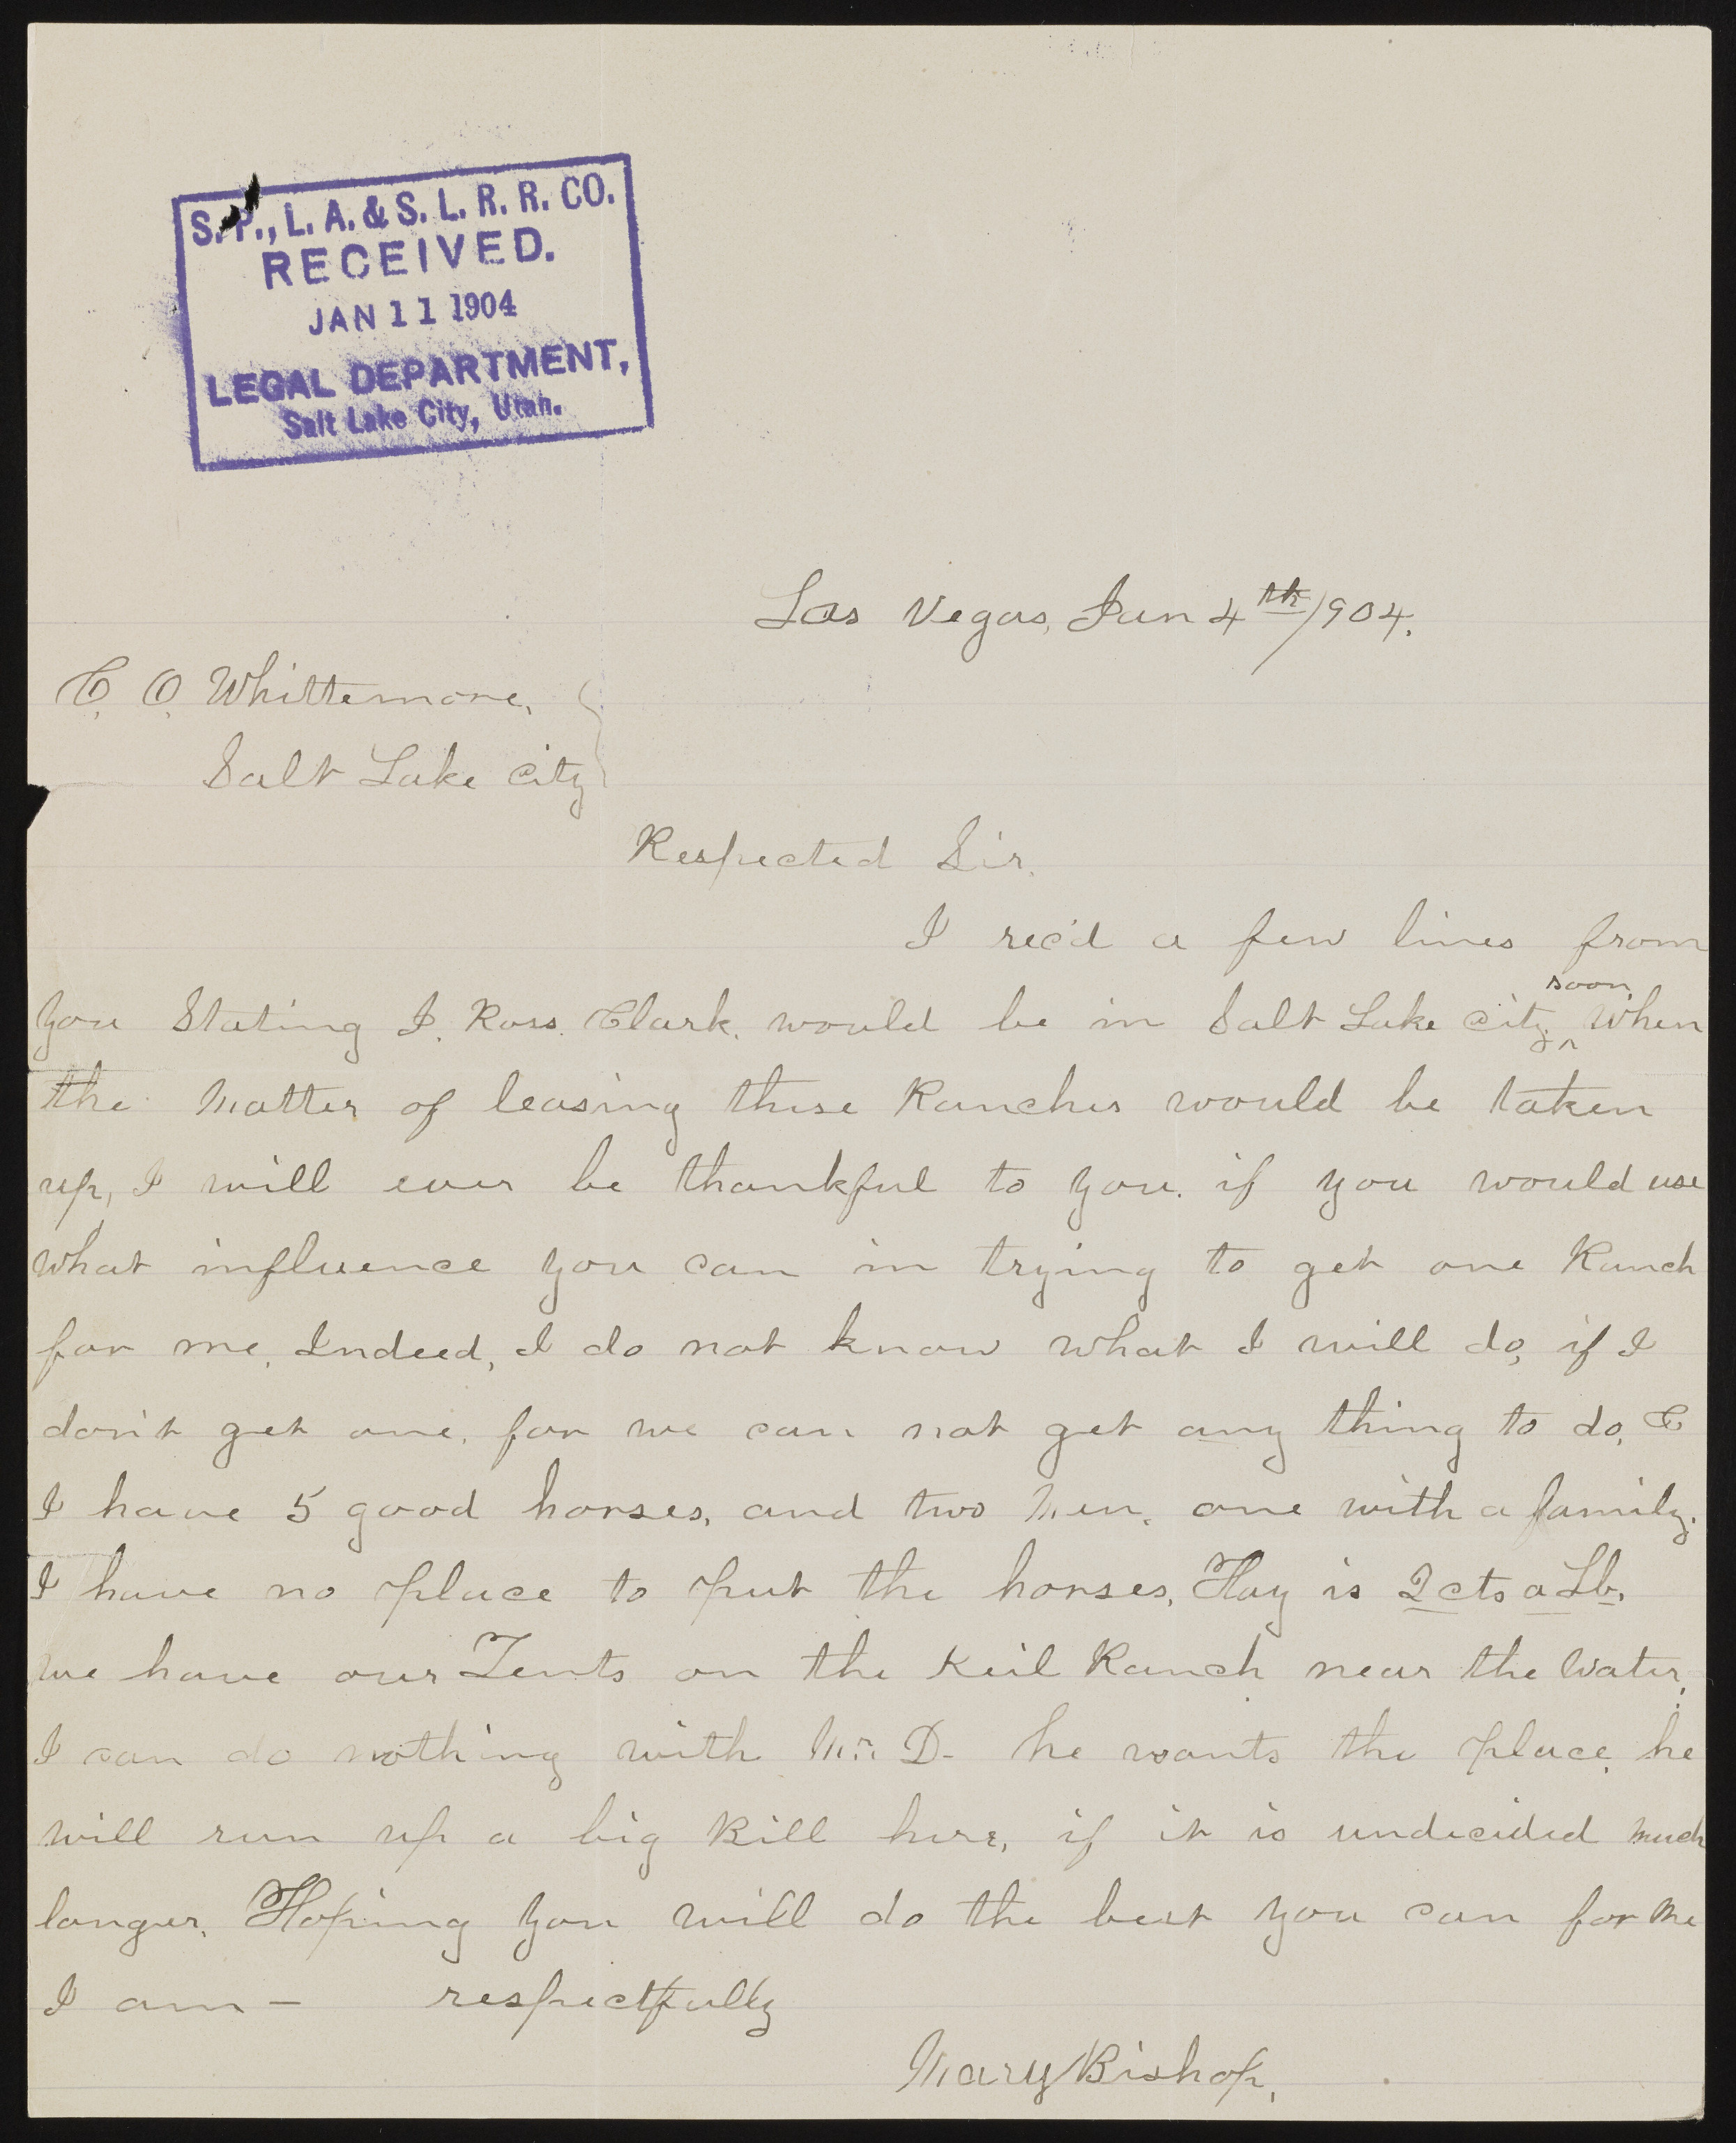 S.P., L. A. & S. L. R. R. CO.
RECEIVED.
JAN 11 1904
LEGAL DEPARTMENT,
Salt Lake City, Utah.
Las Vegas, Jan 4th/1904.
C. O. Whittemore,
Salt Lake City
Respected Sir.
I rec'd a few lines from
soon,
you Stating J. Ross. Clark. would be in Salt Lake City. ^ When
the Matter of leasing these Ranches would be taken
up, I will ever be thankful to you. if you would use
what influence you can in trying to get one Ranch
for me. Indeed, I do not know what I will do, if I
don't get one. for we can not get any thing to do, &
I have 5 good horses, and two Men. one with a family.
I have no place to put the horses, Hay is 2 cts a Lb.
we have our Tents on the Keil Ranch near the Water,
I can do nothing with Mr. D- he wants the place, he
will run up a big Bill here, if it is undecided much
longer. Hoping you will do the best you can for Me
I am - respectfully
Mary Bishop.